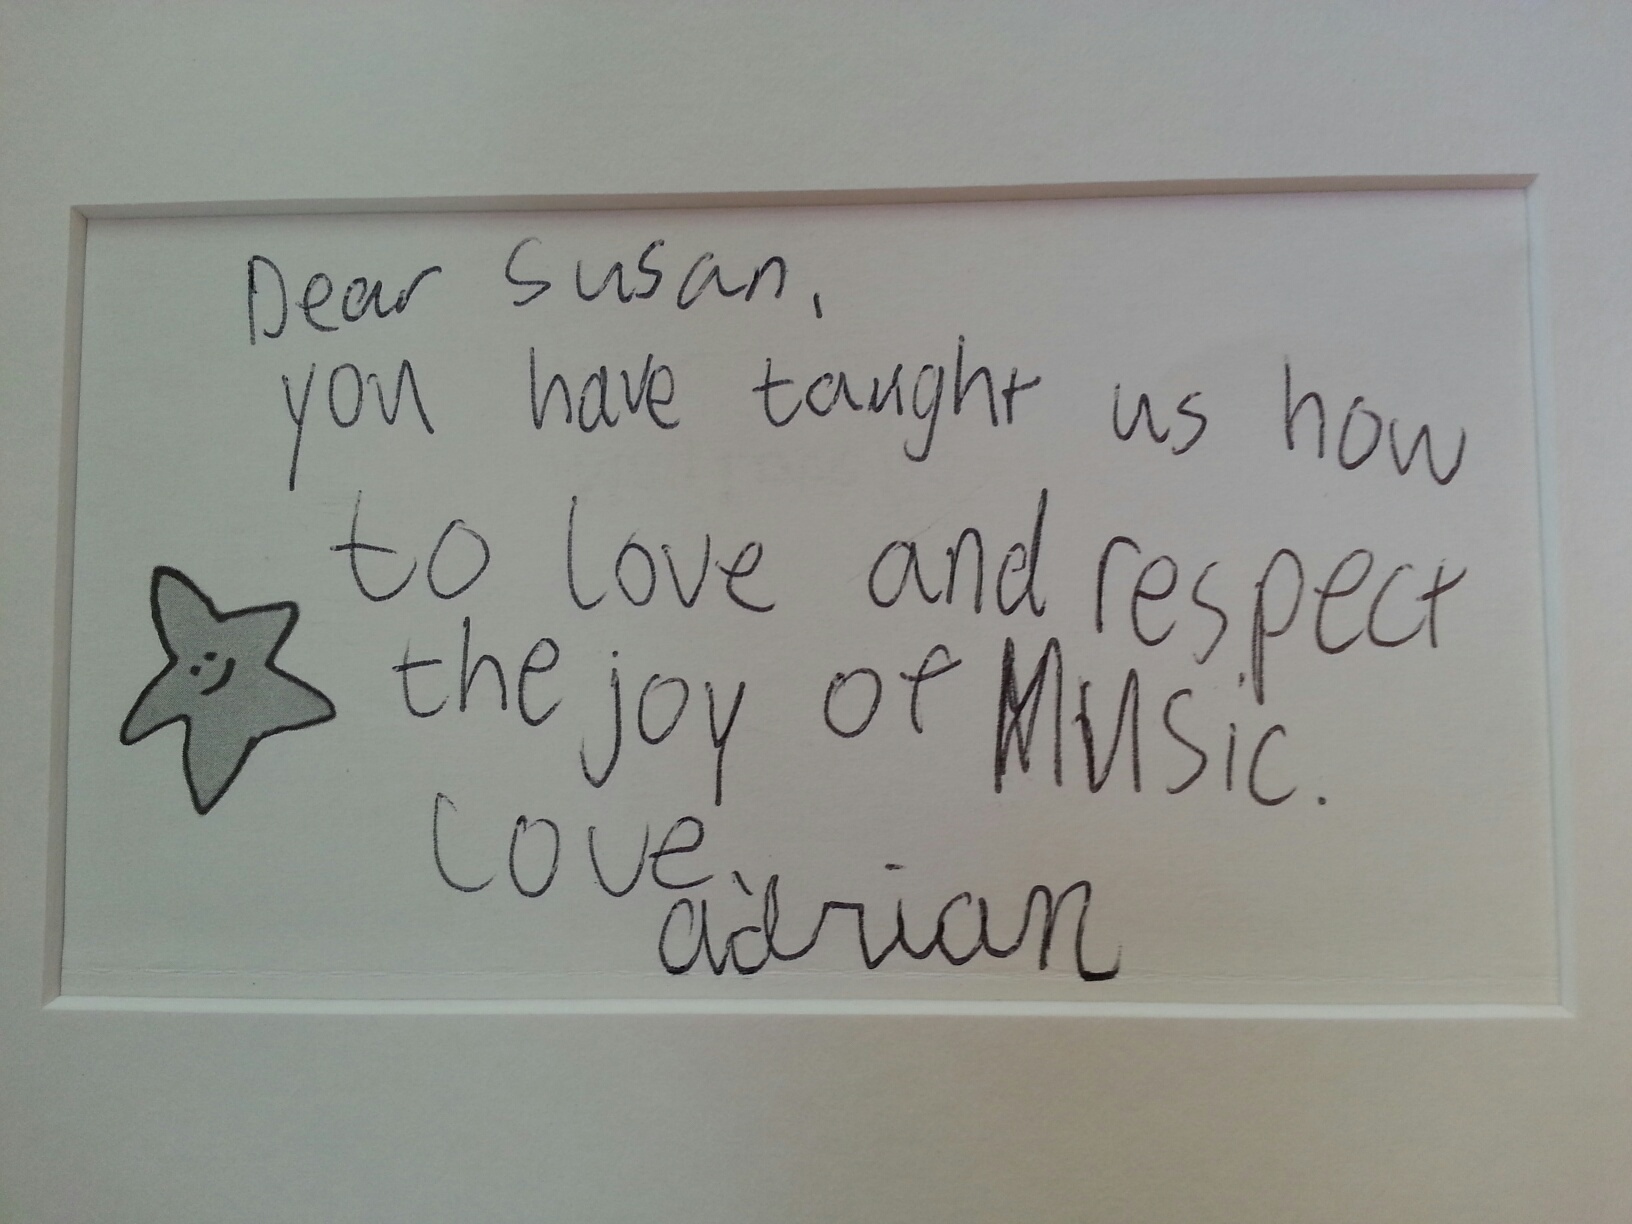 Dear Susan,
you have taught us how
to love and respect
the joy of Music.
Love,
adrian